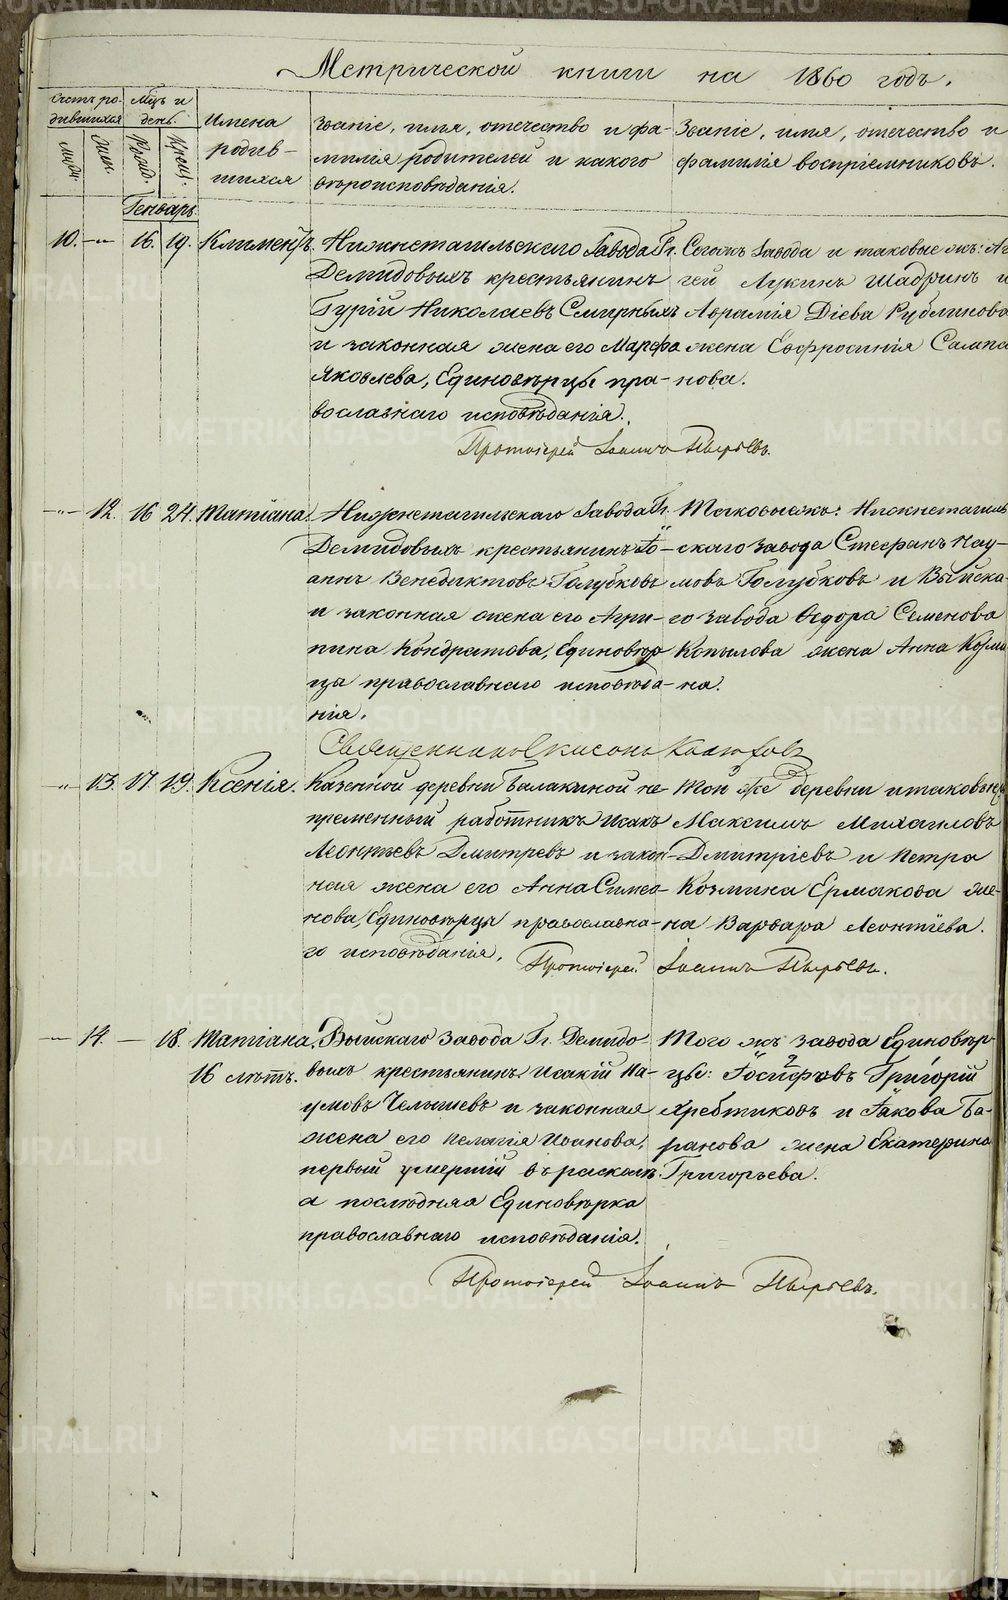 Метрической книги на 1860 годъ.
Счетъ ро-
дившихся
Мѣцъ и
день.
Имена
родив-
шихся
Званіе, имя, отечество и фа-
милія родителей и какого
вѣроисповѣданія.
Званіе, имя, отечество и
фамилія воспріемниковъ.
муж.
жен.
Рожд.
Крещ.
Генварь
10. —"— 16. 19. Климентъ.
Нижнетагильскаго Завода Гг.
Демидовыхъ крестьянинъ
Гурій Николаевъ Смирныхъ
и законная жена его Марѳа
Яковлева, Единовѣрцы пра-
вославнаго исповѣданія.
Сегожъ Завода и таковые жъ: Ан
гей Лукинъ Шадринъ и
Аврамія Діева Рублинова
жена Евфросинія Сампо
нова.
Протоіерей Іоаннъ Пырьевъ.
—"— 12. 16 24. Татіана.
Нижнетагильскаго Завода Гг.
Демидовыхъ крестьянинъ Іо-
аннъ Венедиктовъ Голубковъ
и законная жена его Агри-
пина Кондратова, Единовѣр
цы православнаго исповѣда-
нія.
Таковыежъ: Нижнетагиль
скаго завода Стефанъ Нау-
мовъ Голубковъ и Выйска-
го завода Ѳедора Семенова
Копылова жена Анна Козми
на.
Священник
—"— 13. 17. 19. Ксенія.
Казенной деревни Балакиной не-
пременный работникъ Исакъ
Леонтьевъ Дмитревъ и закон-
ная жена его Анна Симео-
нова, Единовѣрцы православна-
го исповѣданія.
Той же деревни и таковые
Максимъ Михаиловъ
Дмитріевъ и Петра
Козмина Ермакова же-
на Варвара Леонтіева.
Протоіерей Іоаннъ Пырьевъ.
—"— 14. — 18. Татіана.
16 лѣтъ.
Выйскаго Завода Гг. Демидо-
выхъ крестьянинъ Исакій На-
умовъ Челышевъ и законная
жена его Пелагія Иванова,
первый умершій въ расколѣ
а послѣдняя Единовѣрка
православнаго исповѣданія.
Того жъ завода Единовѣр-
цы: Іосифовъ Григорій
Хребтиковъ и Іакова Ба-
ранова жена Екатерина
Григорьева.
Протоіерей Іоаннъ Пырьевъ.
METRIKI.GASO-URAL.RU